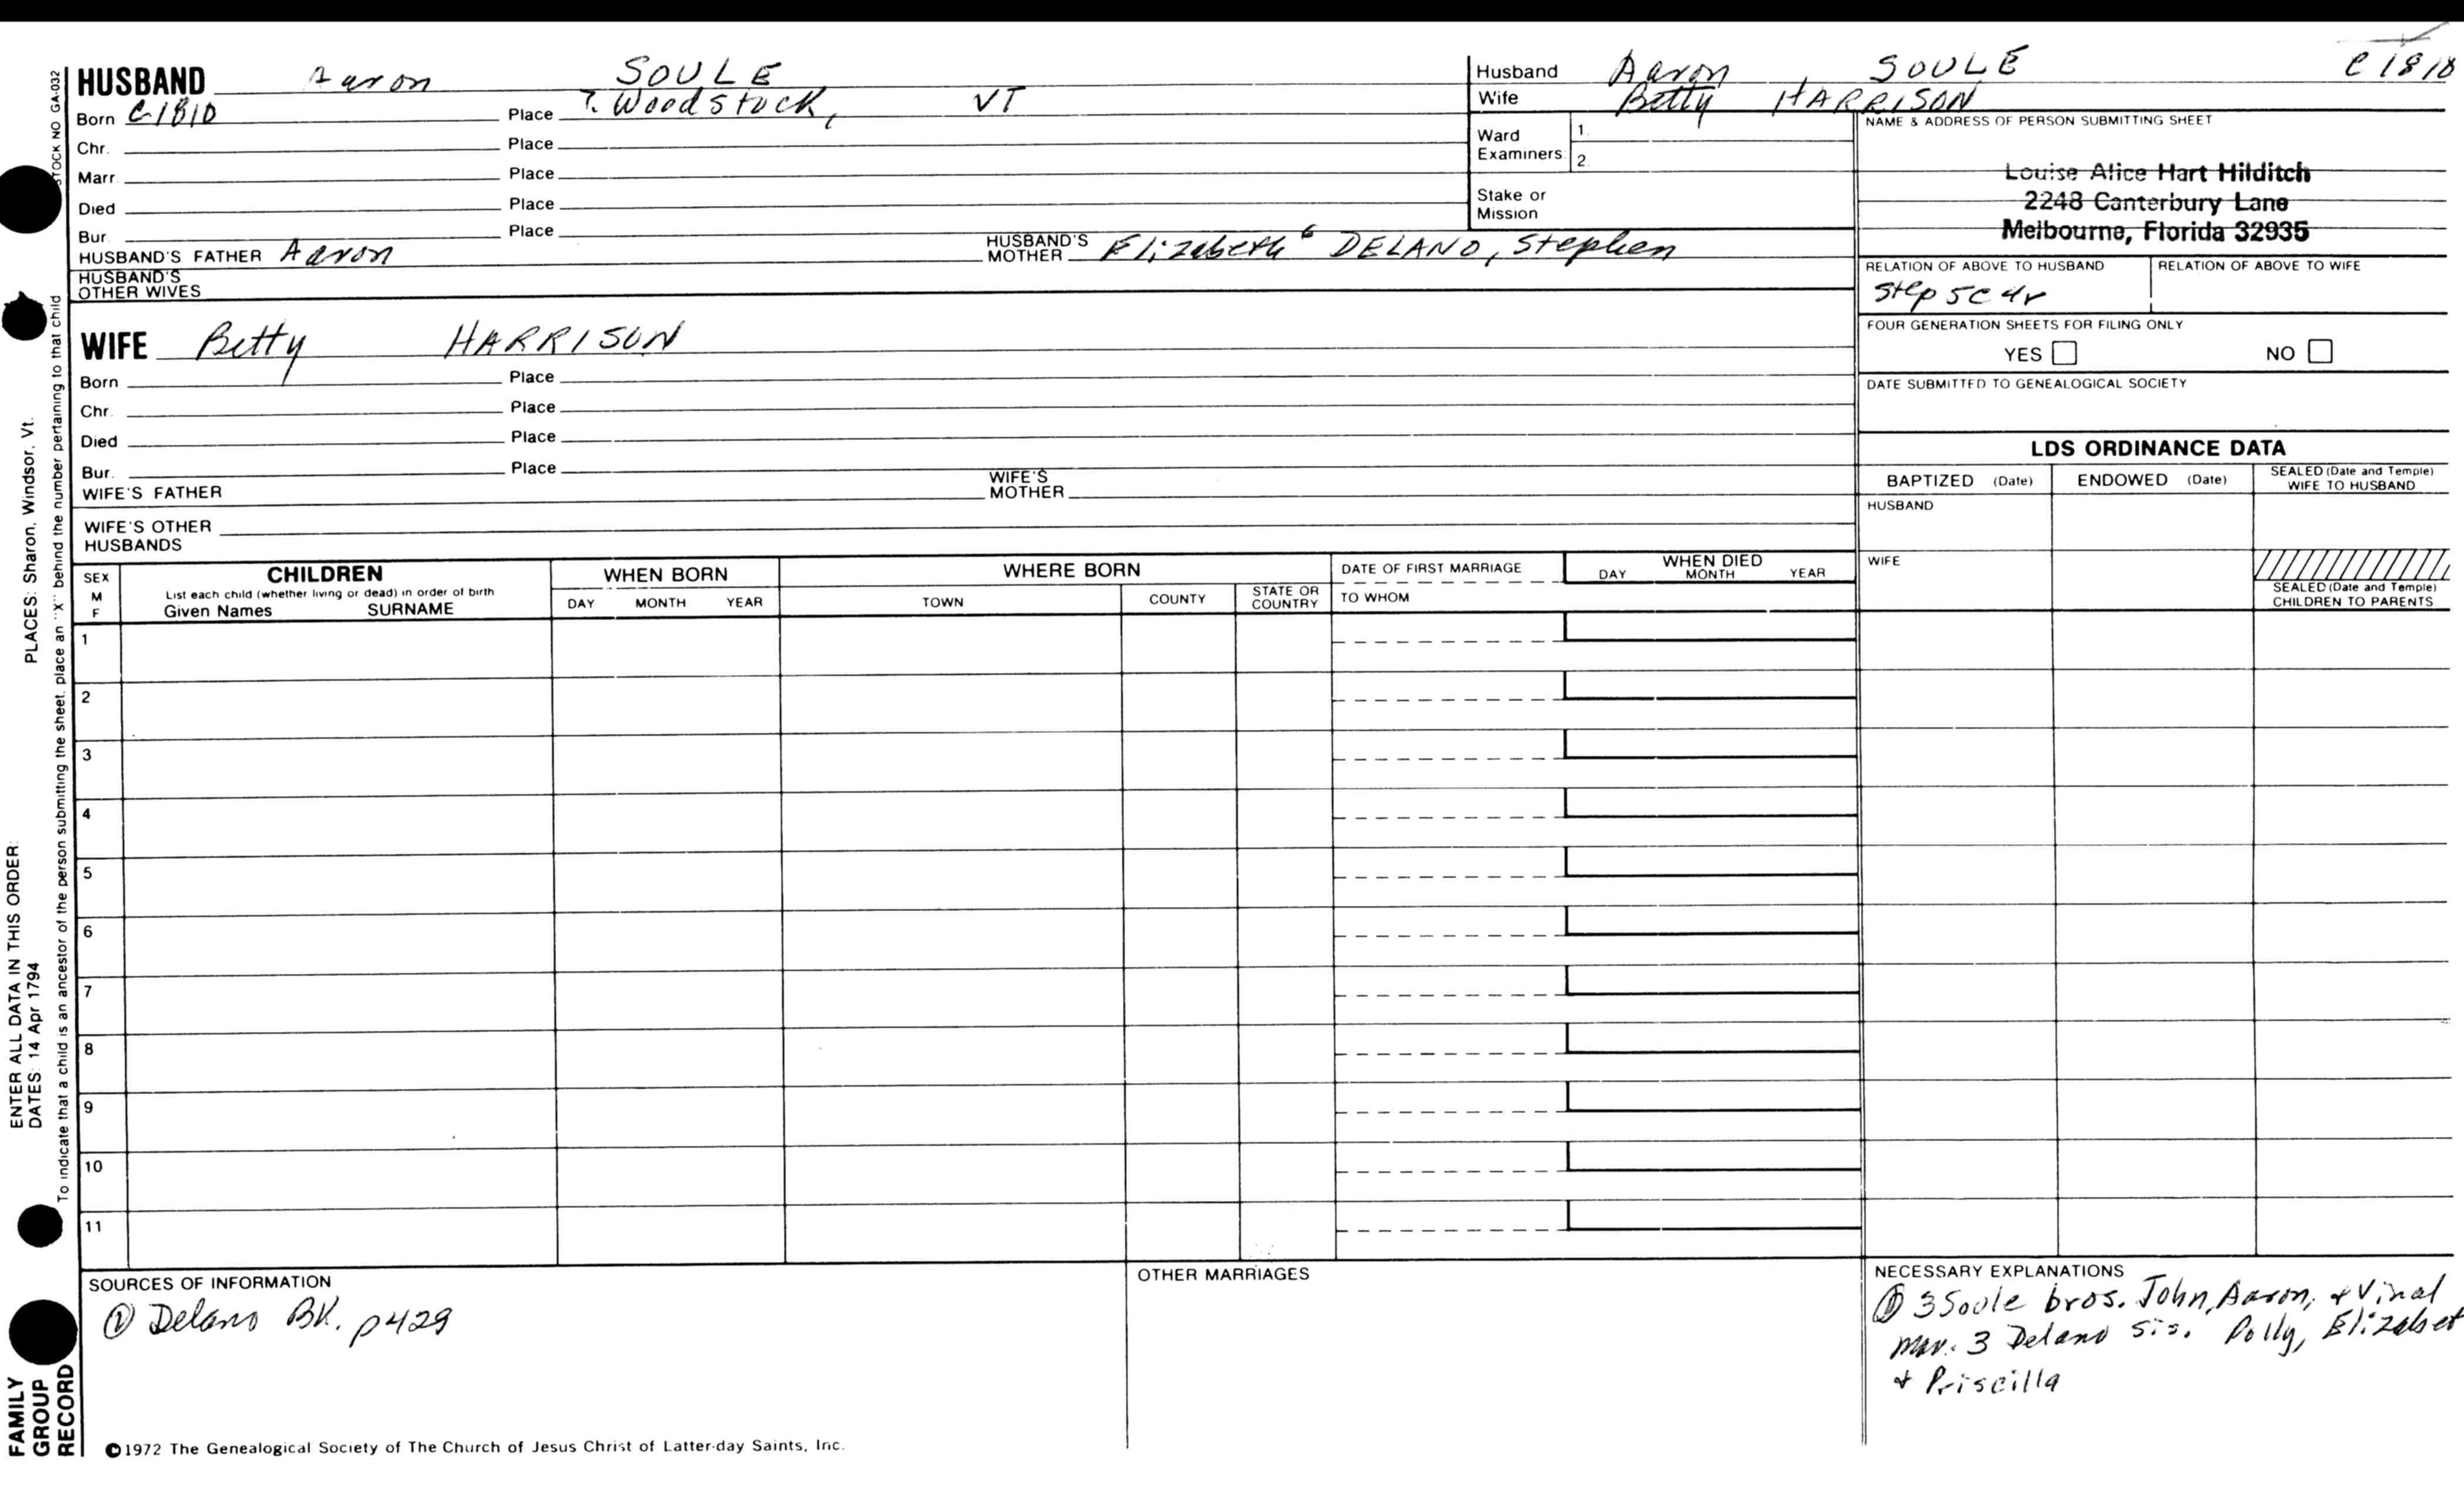 STOCK NO GA-032
HUSBAND Aaron SOULE
Born C1810 Place ?. Woodstock, VT
Chr. Place
Marr. Place
Died Place
Bur. Place
HUSBAND'S FATHER Aaron HUSBAND'S MOTHER Elizabeth 6 DELANO, Stephen
HUSBAND'S OTHER WIVES
WIFE Betty HARRISON
Born Place
Chr. Place
Died Place
Bur. Place
WIFE'S FATHER WIFE'S MOTHER
WIFE'S OTHER HUSBANDS
Husband Aaron, SOULE C1810
Wife Betty HARRISON
Ward Examiners: 1. 2.
Stake or Mission
NAME & ADDRESS OF PERSON SUBMITTING SHEET
Louise Alice Hart Hilditch
2248 Canterbury Lane
Melbourne, Florida 32935
RELATION OF ABOVE TO HUSBAND RELATION OF ABOVE TO WIFE
Step 5C4r
FOUR GENERATION SHEETS FOR FILING ONLY
YES NO
DATE SUBMITTED TO GENEALOGICAL SOCIETY
LDS ORDINANCE DATA
BAPTIZED (Date) ENDOWED (Date) SEALED (Date and Temple) WIFE TO HUSBAND
HUSBAND
WIFE
SEALED (Date and Temple) CHILDREN TO PARENTS
SEX M F
CHILDREN
List each child (whether living or dead) in order of birth
Given Names SURNAME
WHEN BORN
DAY MONTH YEAR
WHERE BORN
TOWN COUNTY STATE OR COUNTRY
DATE OF FIRST MARRIAGE
TO WHOM
WHEN DIED
DAY MONTH YEAR
1
2
3
4
5
6
7
8
9
10
11
SOURCES OF INFORMATION
① Delano BK. p429
OTHER MARRIAGES
NECESSARY EXPLANATIONS
① 3 Soule bros. John, Aaron, & Vinal
mar. 3 Delano sis. Polly, Elizabet
& Priscilla
©1972 The Genealogical Society of The Church of Jesus Christ of Latter-day Saints, Inc.
FAMILY
GROUP
RECORD
ENTER ALL DATA IN THIS ORDER:
DATES: 14 Apr 1794 PLACES: Sharon, Windsor, Vt.
To indicate that a child is an ancestor of the person submitting the sheet, place an "X" behind the number pertaining to that child